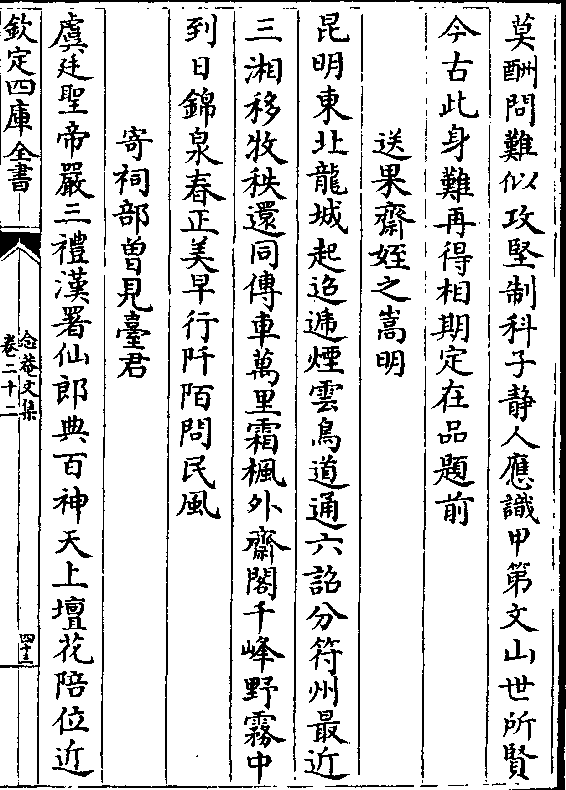 莫酬問難似攻堅制科子静人應識甲第文山世所賢
今古此身難再得相期定在品題前
送果齋姪之嵩明
昆明東北龍城起迢遞煙雲鳥道通六詔分符州最近
三湘移牧秩還同傳車萬里霜楓外齋閣千峰野霧中
到日錦泉春正美早行阡陌問民風
寄祠部曾見臺君
虞廷聖帝嚴三禮漢署仙郎典百神天上壇花陪位近
欽定四庫全書
念菴文集
卷二十二
四十三